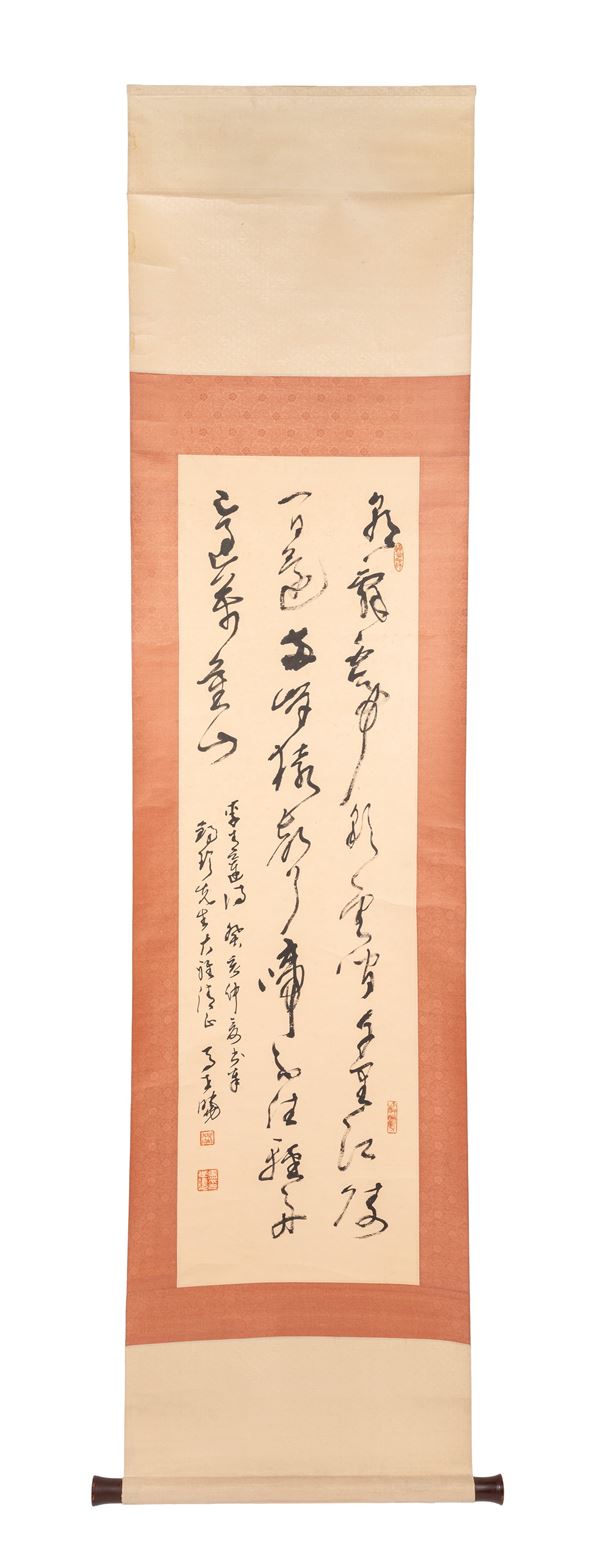 朝辭白帝彩雲間千里江陵
一日還兩岸猿聲啼不住輕舟
已過萬重山
李青蓮詩 癸亥仲夏書奉
先生大雅清正